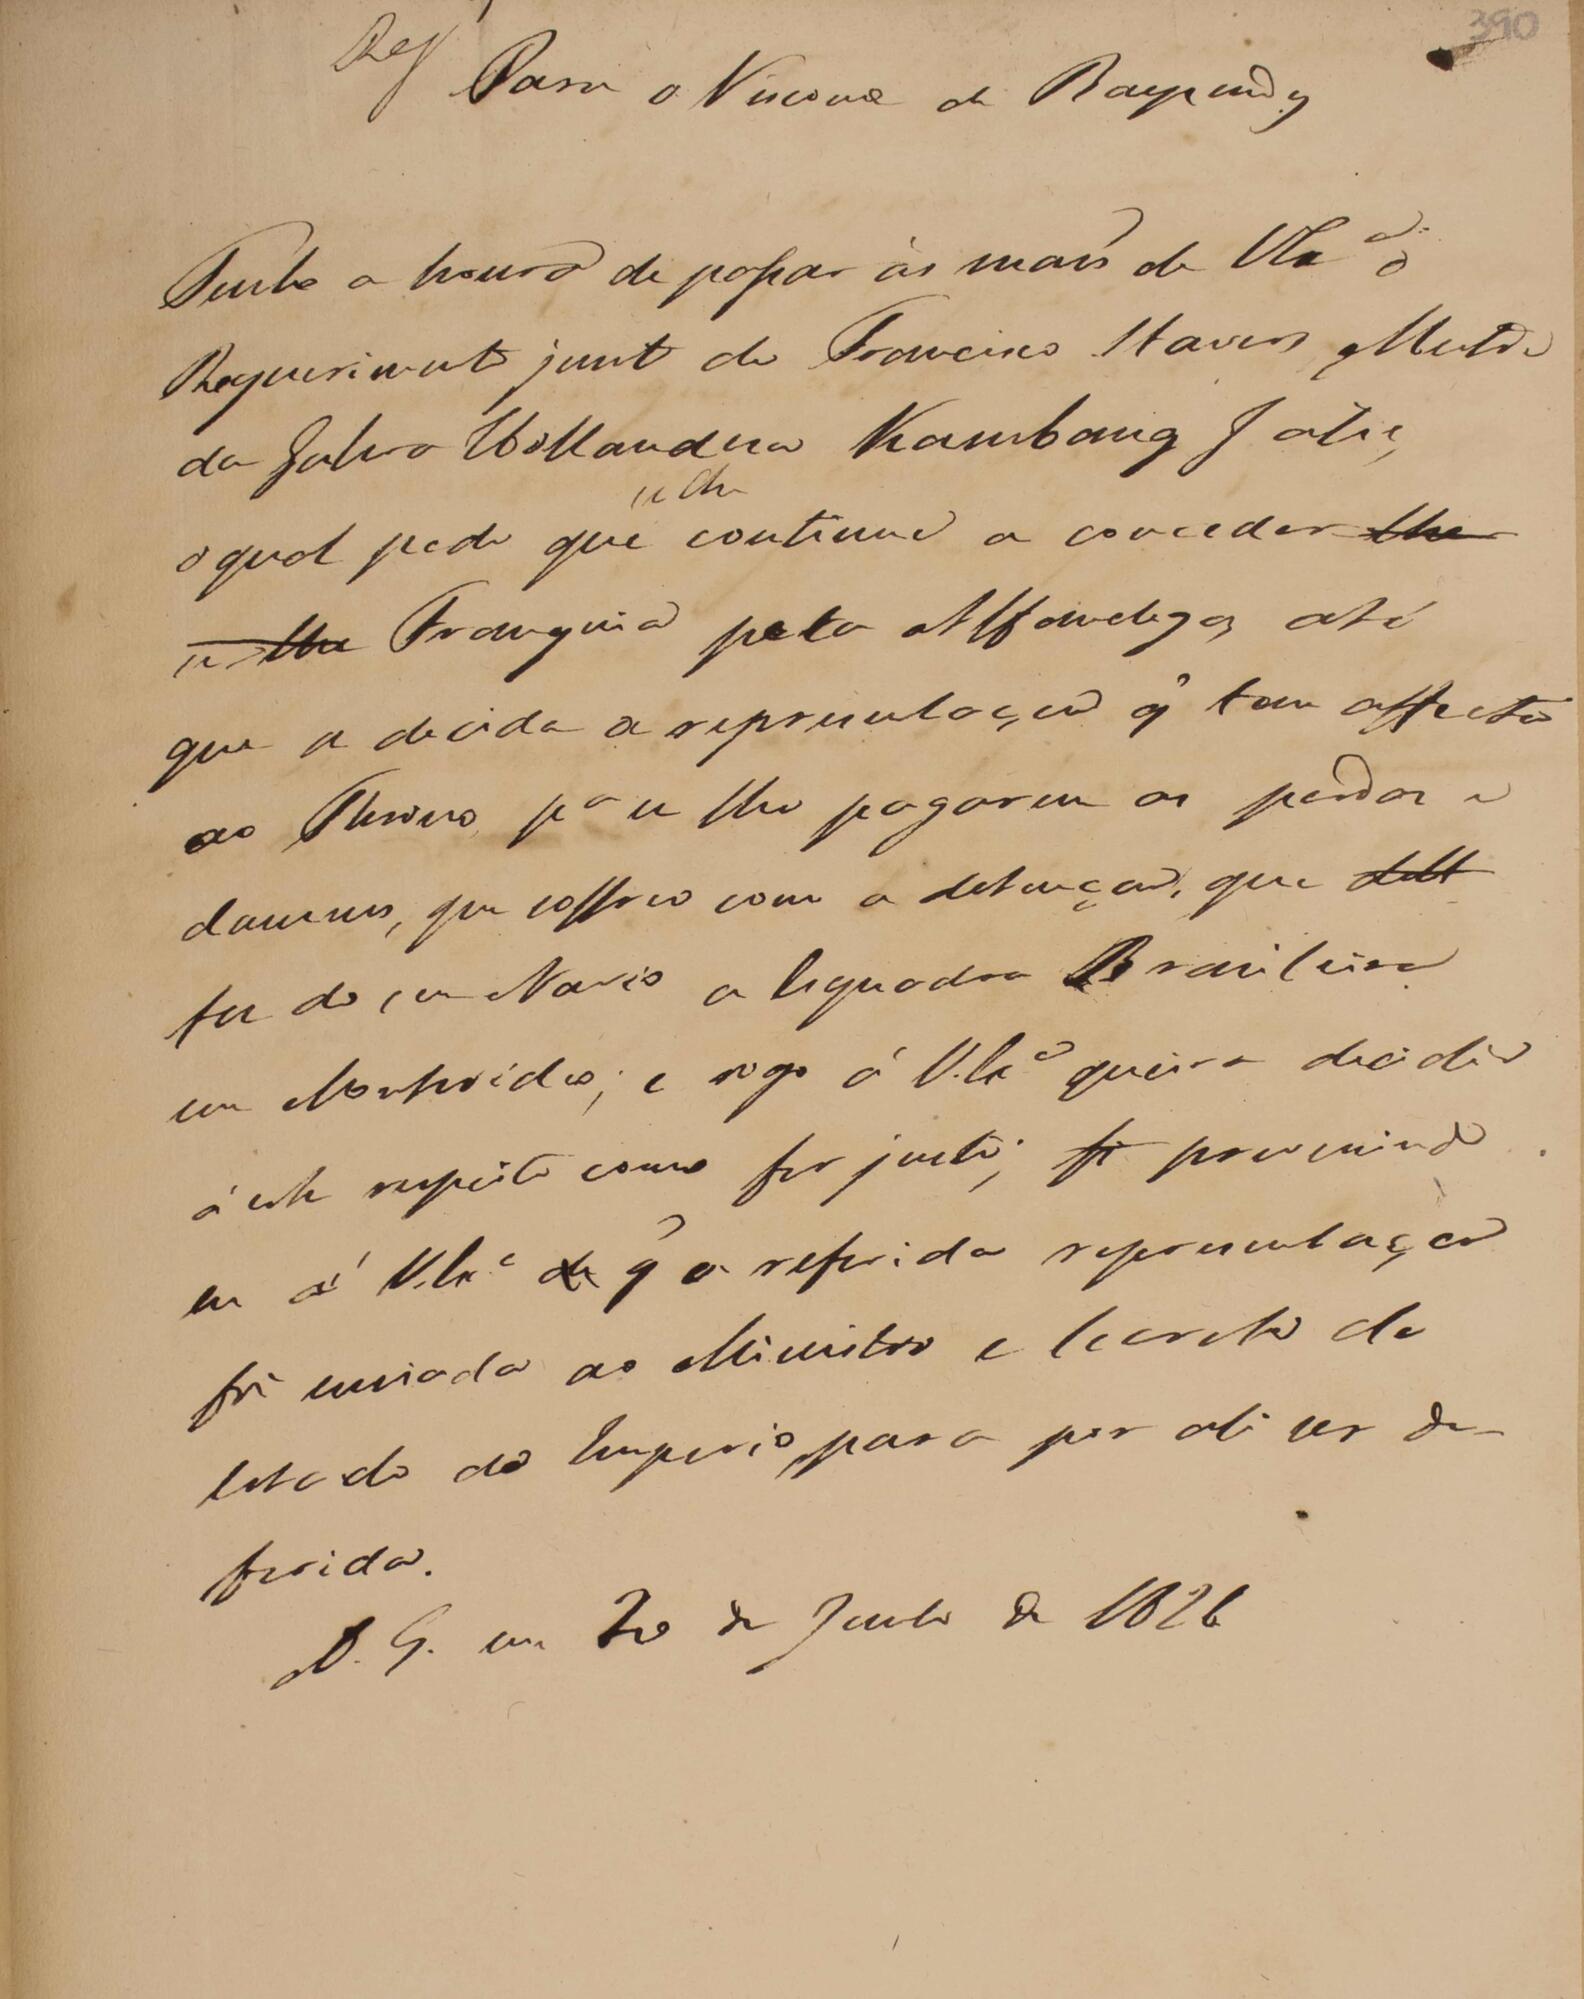 390
Reg
Para o Visconde de Baependy
Tenho a honra de passar ás maõs de V Ex.ª o
Requerimento junto de Francisco Stavers, Mestre
da Galera Hollandeza Kambang Jatie,
se lhe
o qual pede que continue a conceder lhe
se lhe Franquia pela Alfandega, até
que se decida a representaçaõ q̃ tem affecta
ao Throno, pª se lhe pagarem as perdas e
damnos, que soffreo com a detençaõ, que
fez do seu Navio a Esquadra Brasileira
em Montevideo; e rogo á V.Exª queira decidir
á este respeito como for justo; fi prevenindo
eu á V.Exª de q̃ a referida representaçaõ
foi enviada ao Ministro e Secretº de
Estado do Imperio, para por ali ser de-
ferida.
D. G. em 20 de Junho de 1826